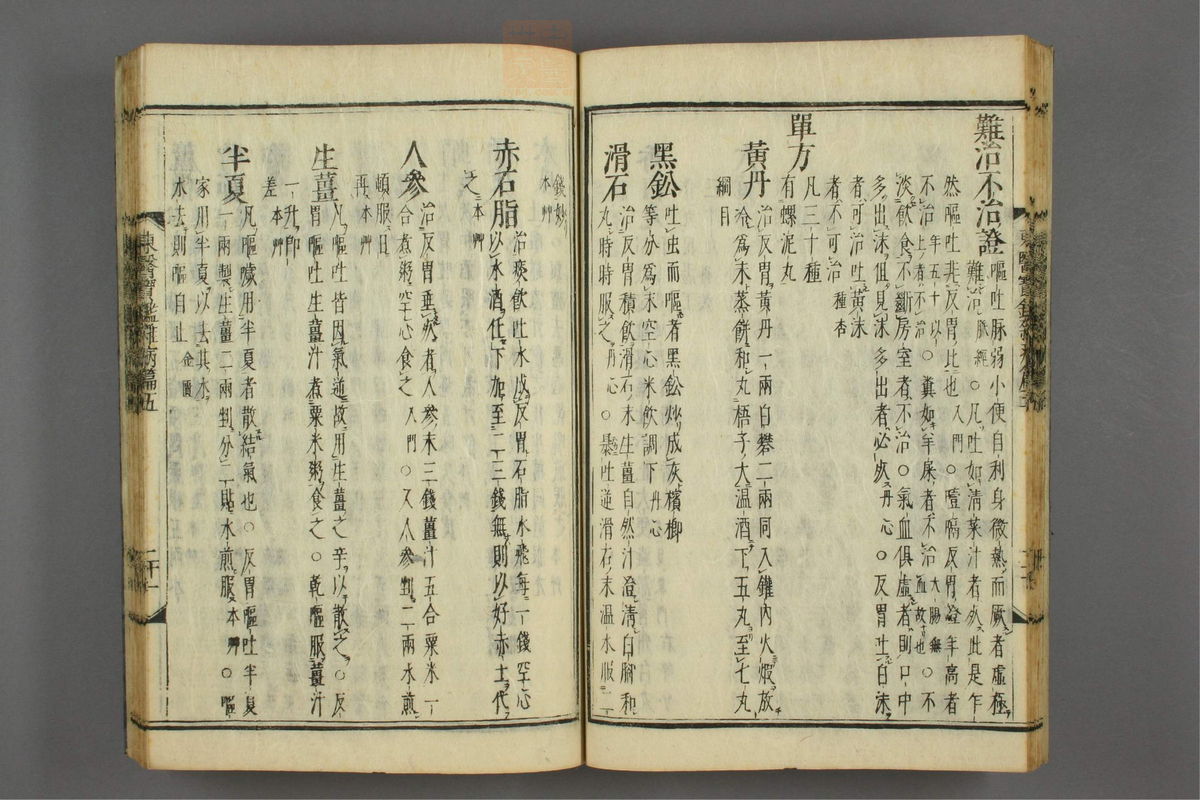 難治不治證 嘔吐脉弱小便自利身微熱而厥者虛極
難治 脉經 ○凡吐如清菜汁者死此是乍
然嘔吐非反胃比也 入門 ○噎膈反胃證年高者
不治 年五十以上者不治 ○糞如羊屎者不治 大腸無血故也 ○不
淡飲食不斷房室者不治○氣血俱虛者則口中
多出沫但見沫多出者必死 丹心 ○反胃吐白沫
者可治吐黃沫
者不可治 種杏
單方 凡三十種
有螺泥丸
黃丹 治反胃黃丹一兩白礬二兩同入罐內火煆放
冷爲末蒸餠和丸梧子大温酒下五丸至七丸
綱目
黑鈆 吐虫而嘔者黑鈆炒成灰檳榔
等分爲末空心米飮調下 丹心
滑石 治反胃積飮滑石末生薑自然汁澄清白腳和
丸時時服之 丹心 ○暴吐逆滑石末温水服二
錢妙 本艸
赤石脂 治痰飮吐水成反胃石脂水飛每一錢空心
以水酒化下加至二三錢無則以好赤土代
之 本艸
人參 治反胃垂死者人參末三錢薑汁五合粟米一
合煮粥空心食之 入門 ○又人參剉二兩水煎
頓服日
再 本艸
生薑 凡嘔吐皆因氣逆故用生薑之辛以散之○反
胃嘔吐生薑汁煮粟米粥食之○乾嘔服薑汁
一升卽
差 本艸
半夏 凡嘔噦用半夏者散結氣也○反胃嘔吐半夏
一兩製生薑二兩剉分二貼水煎服 本艸 ○嘔
家用半夏以去其水
水去則嘔自止 金匱
東醫寶鑑雜病篇五
二十一